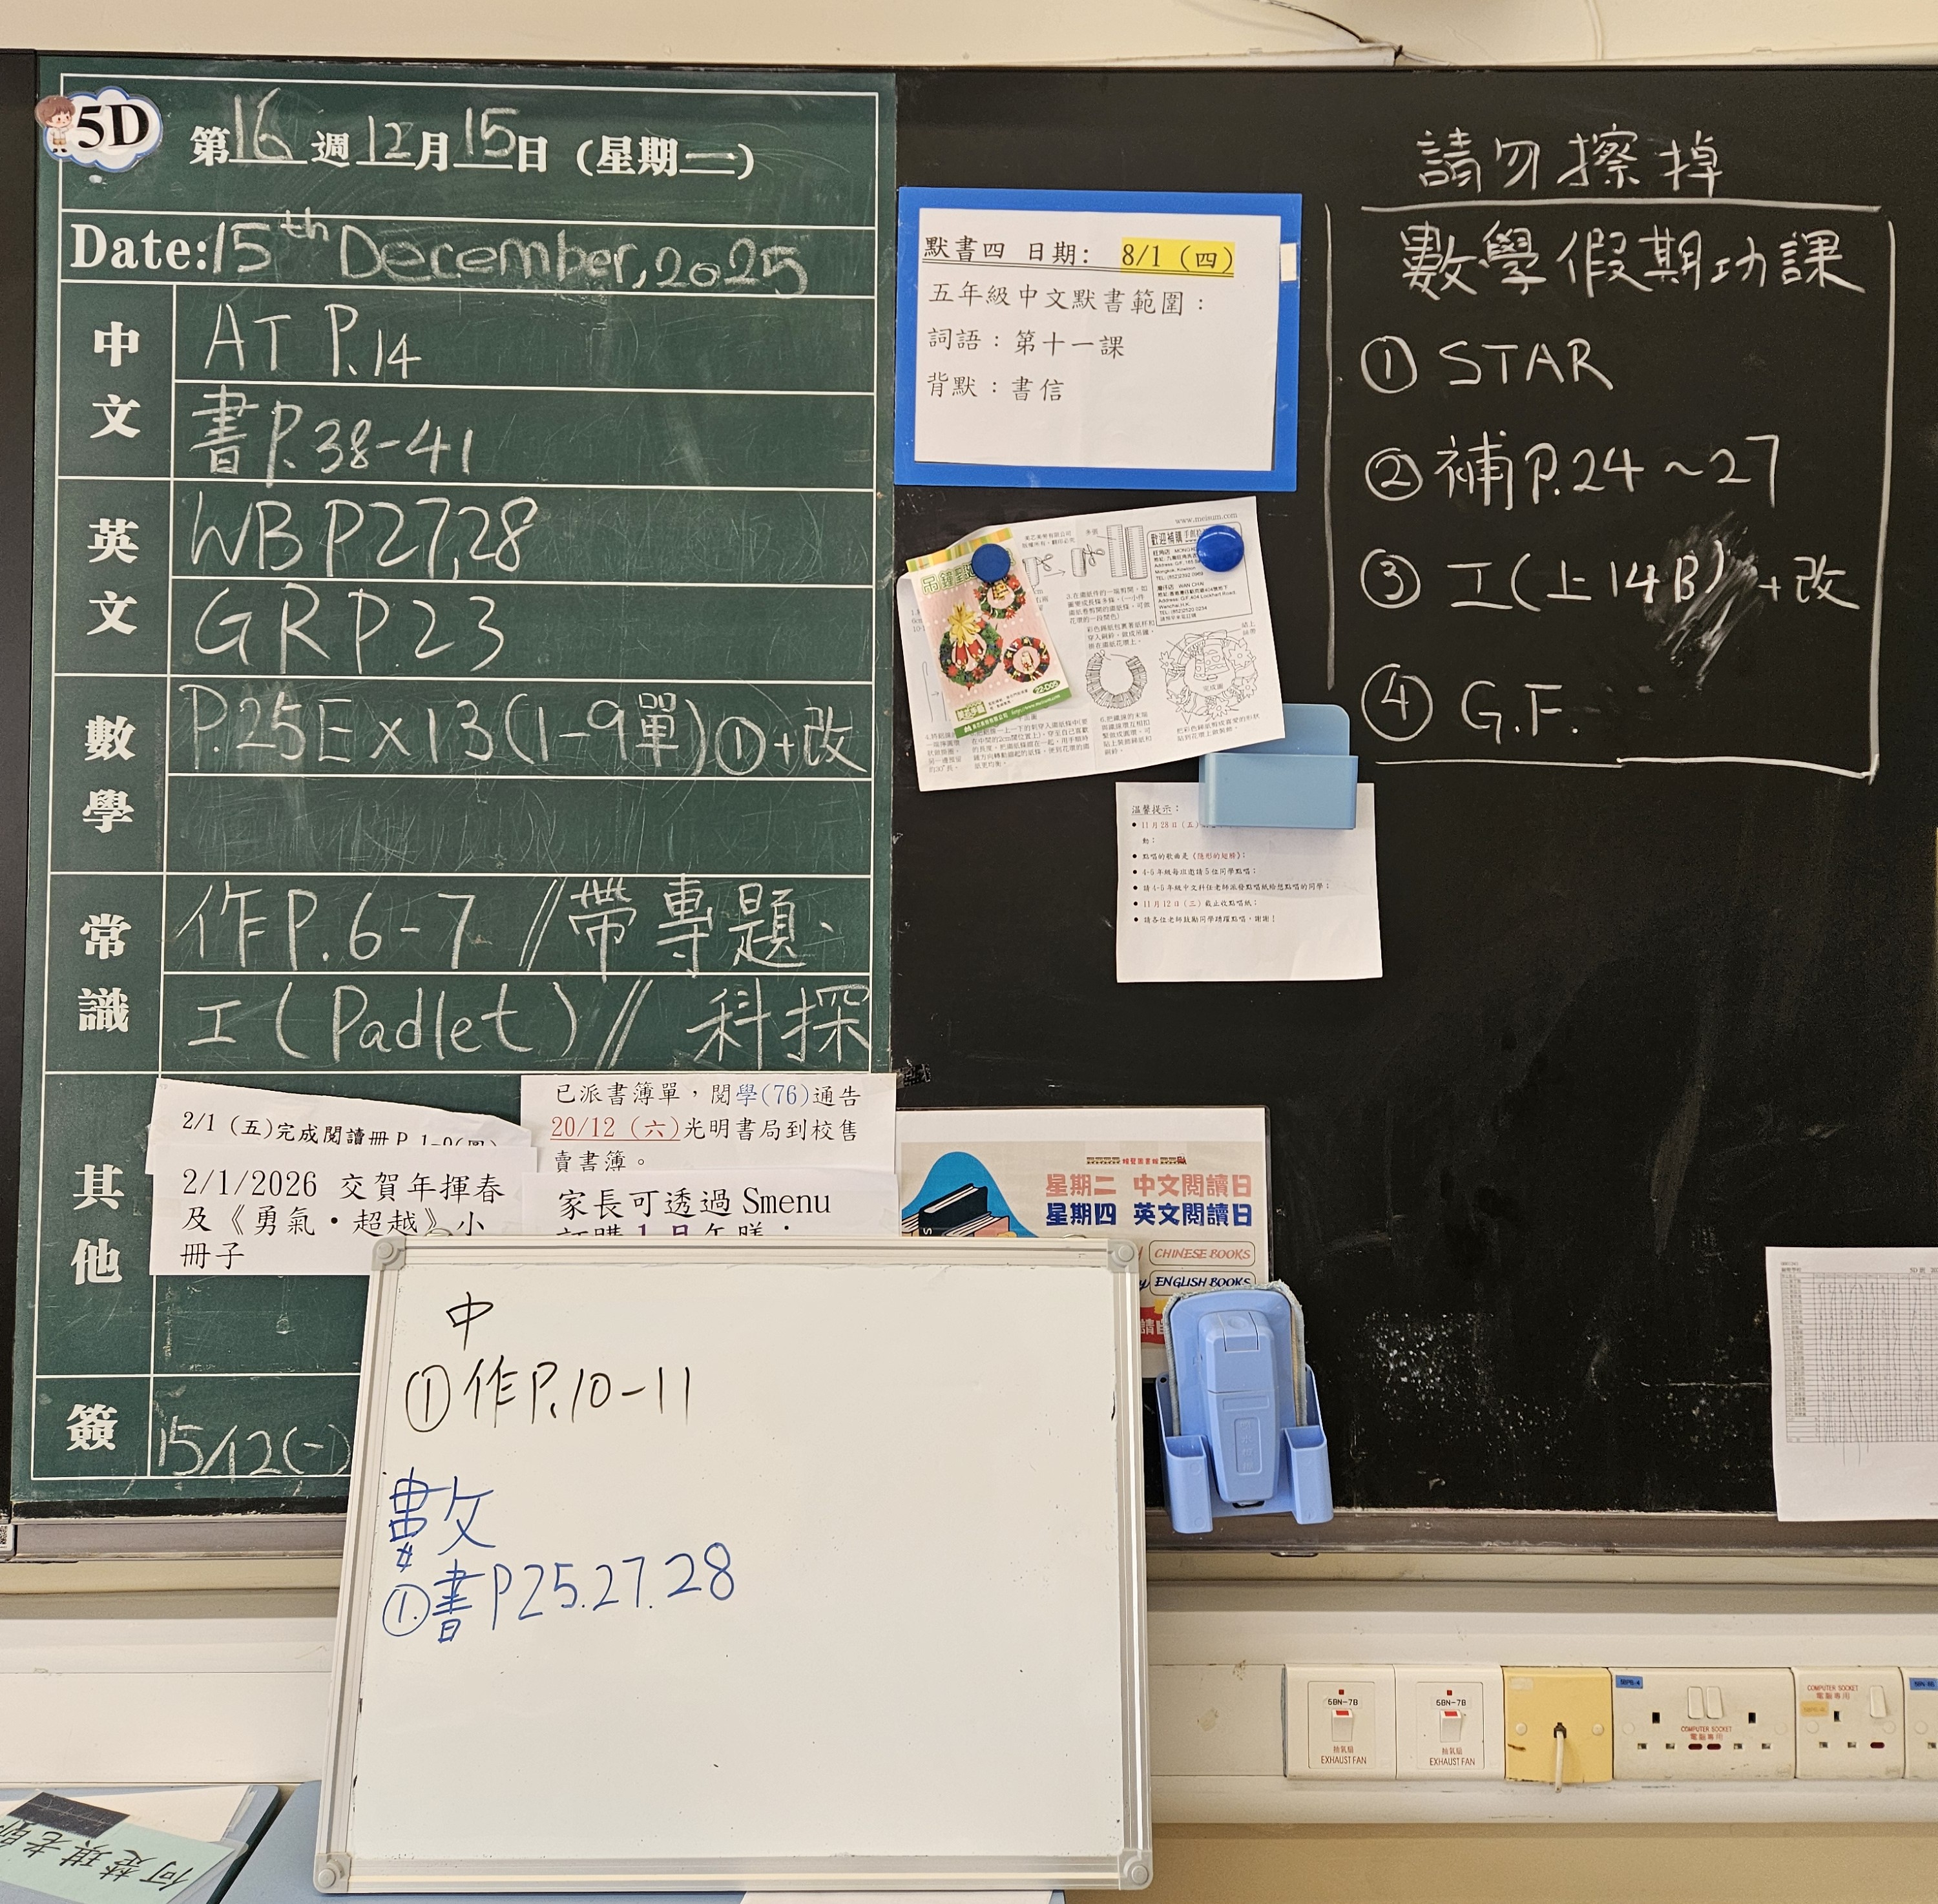 5D
第16週12月15日(星期一)
Date:15th December,2025
中文
AT P.14
書P.38-41
英文
WB P27,28
GR P.23
數學
P.25Ex13(1-9單)①+改
常識
作P.6-7//帶專題、
工(Padlet)//科探
其他
2/1 (五)完成閱讀冊P.
2/1/2026 交賀年揮春
及《勇氣・超越》小
冊子
已派書簿單，閱學(76)通告
20/12 (六)光明書局到校售
賣書簿。
家長可透過 Smenu
訂購1月午膳：
簽
15/12(一)
默書四 日期: 8/1 (四)
五年級中文默書範圍：
詞語：第十一課
背默：書信
www.meisum.com
歡迎補購
完成圖
溫馨提示：
11月28日(五)
動；
點唱的歌曲是《隱形的翅膀》；
4-5年級每班邀請5位同學點唱；
請4-5年級中文科任老師派發點唱紙給想點唱的同學；
11月12日(三)截止收點唱紙；
請各位老師鼓勵同學踴躍點唱，謝謝！
星期二 中文閱讀日
星期四 英文閱讀日
CHINESE BOOKS
ENGLISH BOOKS
請勿擦掉
數學假期功課
① STAR
② 補P.24~27
③ 工(上14B)+改
④ G.F.
中
①作P.10-11
數
①書P25.27.28
5BN-7B
抽氣扇
EXHAUST FAN
5BN-7B
抽氣扇
EXHAUST FAN
COMPUTER SOCKET
電腦專用
COMPUTER SOCKET
電腦專用
何楚琪老師